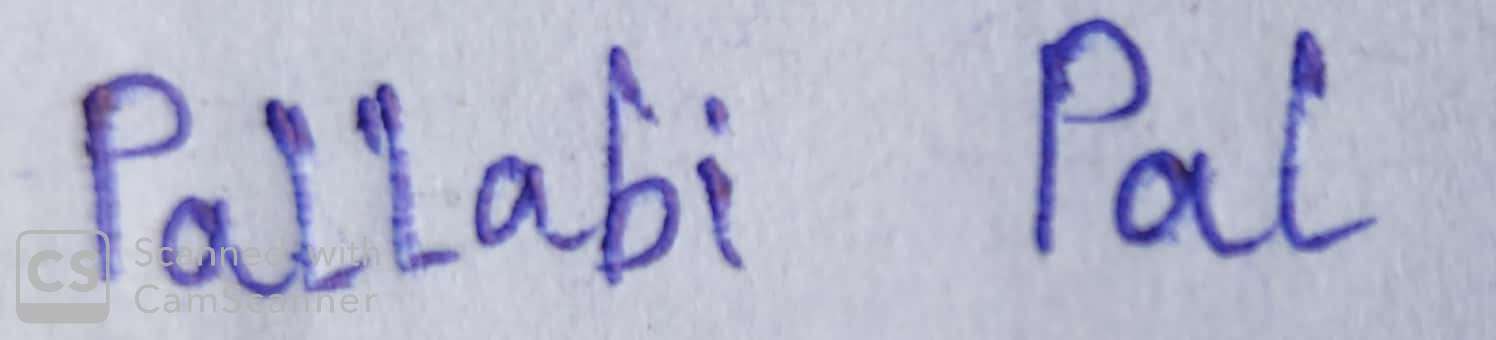 Pallabi Pal
CS Scanned with
CamScanner